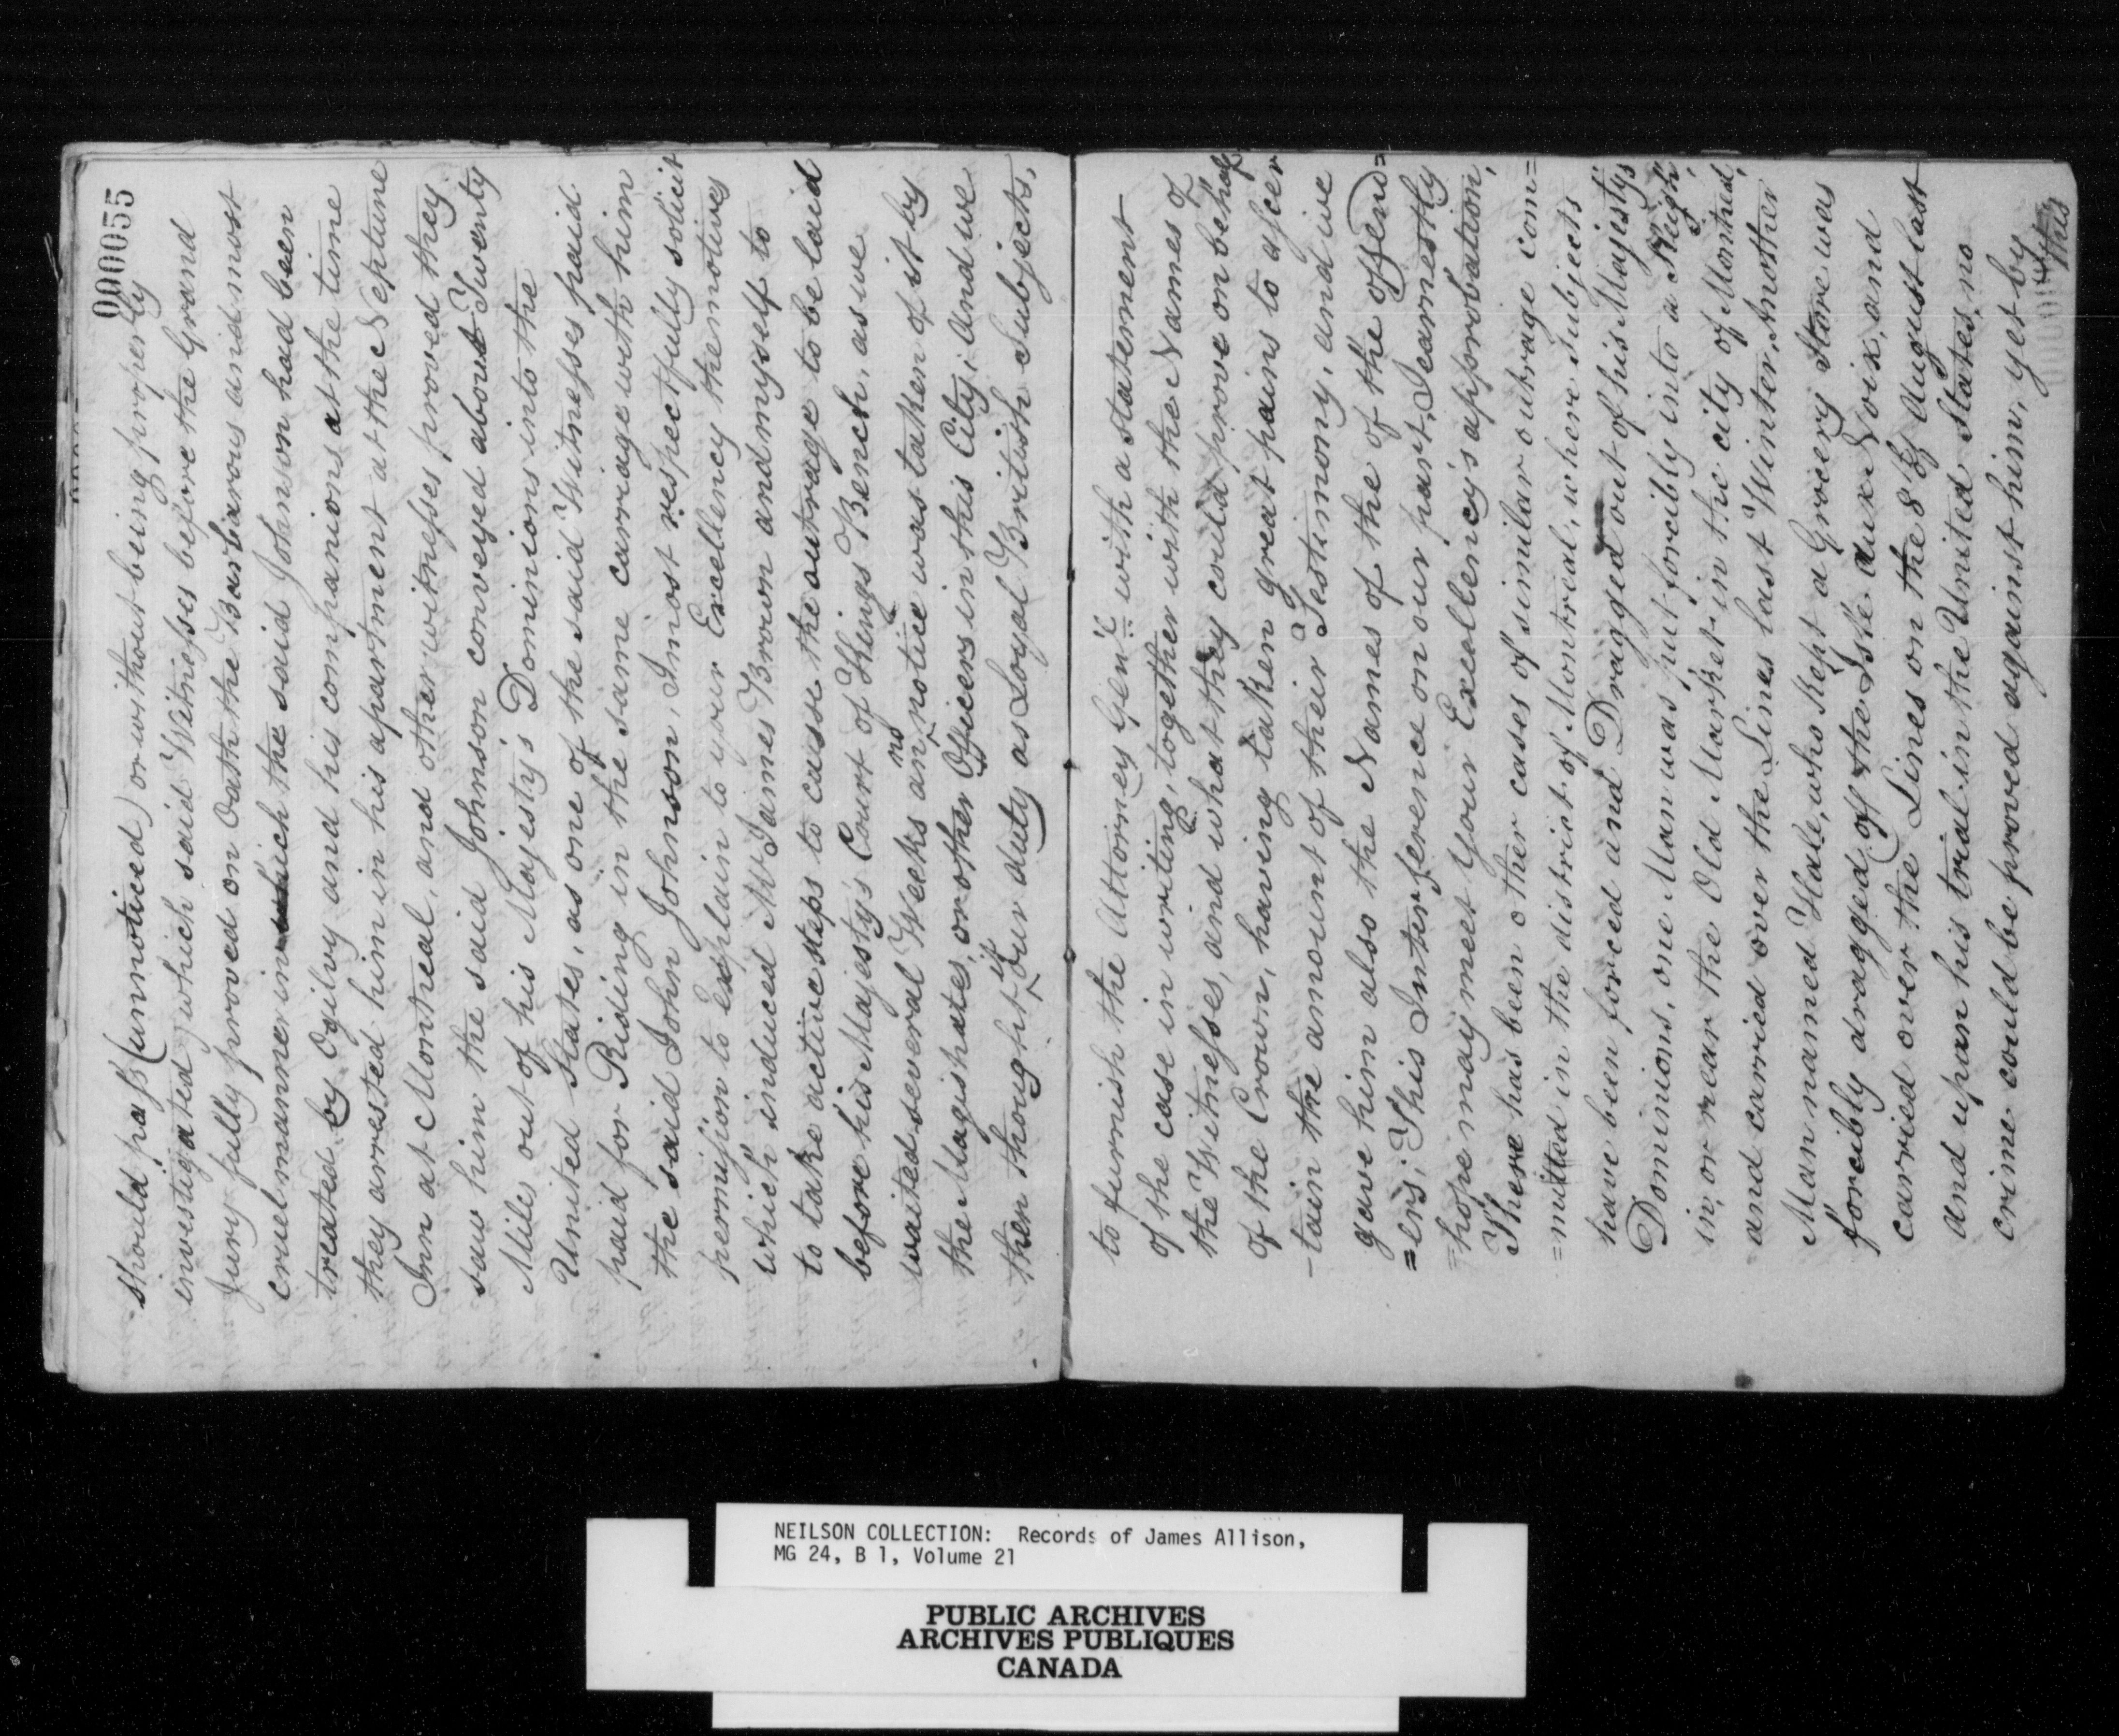 000055
should pass (unnoticed) or without being properly
investigated, which said Witnesses before the Grand
Jury fully proved on Oath the Barbarous and most
cruel manner in which the said Johnson had been
treated by Ogilvy and his companions at the time
they arrested him in his apartment at the Neptune
Inn at Montreal, and other witnesses proved they
saw him the said Johnson conveyed about Twenty
Miles out of his Majesty's Dominions into the
United States, as one of the said Witnesses paid
paid for Riding in the same carriage with him
the said John Johnson, I most respectfully solicit
permission to explain to your Excellency the motives
which induced Mr James Brown and myself to
to take active steps to cause the outrage to be laid
before his Majesty's Court of Kings Bench, as we
waited several Weeks an no notice was taken of it by
the Magistrates, or other Officers in this City, And we
then thought it our duty as Loyal British Subjects,
to furnish the Attorney Gen'l with a statement
of the case in writing, together with the Names of
the Witnesses, and what they could prove on behalf
of the Crown, having taken great pains to ascer
-tain the amount of their Testimony, and we
gave him also the Names of the of the offend=
=ers; This Interference on our part, I earnestly
=hope may meet Your Excellency's approbation,
There has been other cases of similar outrage com=
=mitted in the district of Montreal, where Subjects
have been forced and Dragged out of his Majestys
Dominions, one Man was put forcibly into a Sleigh,
in, or near the Old Market in the city of Montreal,
and carried over the Lines last Winter, Another
Man named Hale, who kept a Grocery Store was
forcibly dragged off the Isle aux Noix, and
carried over the Lines on the 8th of August last
and upan his trial in the United States, no
crime could be proved against him, yet by
this
NEILSON COLLECTION: Records of James Allison,
MG 24, B 1, Volume 21
PUBLIC ARCHIVES
ARCHIVES PUBLIQUES
CANADA